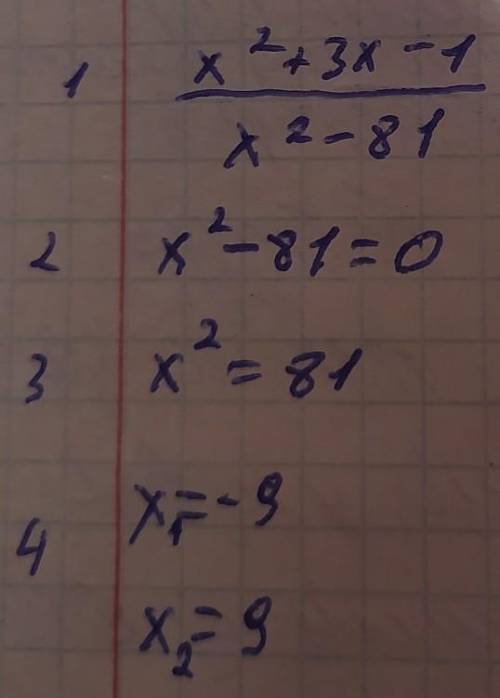 1 x²+3x-1
x²-81
2 x²-81=0
3 x²=81
4 x₁=-9
x₂=9